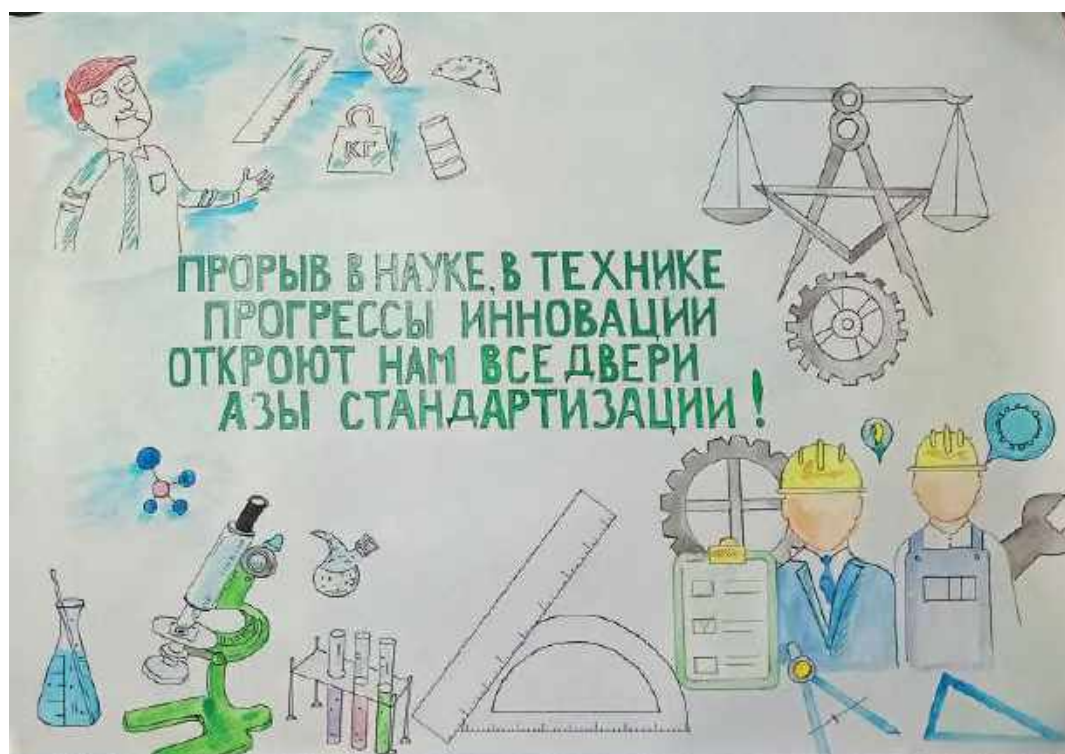 КГ
ПРОРЫВ В НАУКЕ, В ТЕХНИКЕ
ПРОГРЕССЫ ИННОВАЦИИ
ОТКРОЮТ НАМ ВСЕ ДВЕРИ
АЗЫ СТАНДАРТИЗАЦИИ!